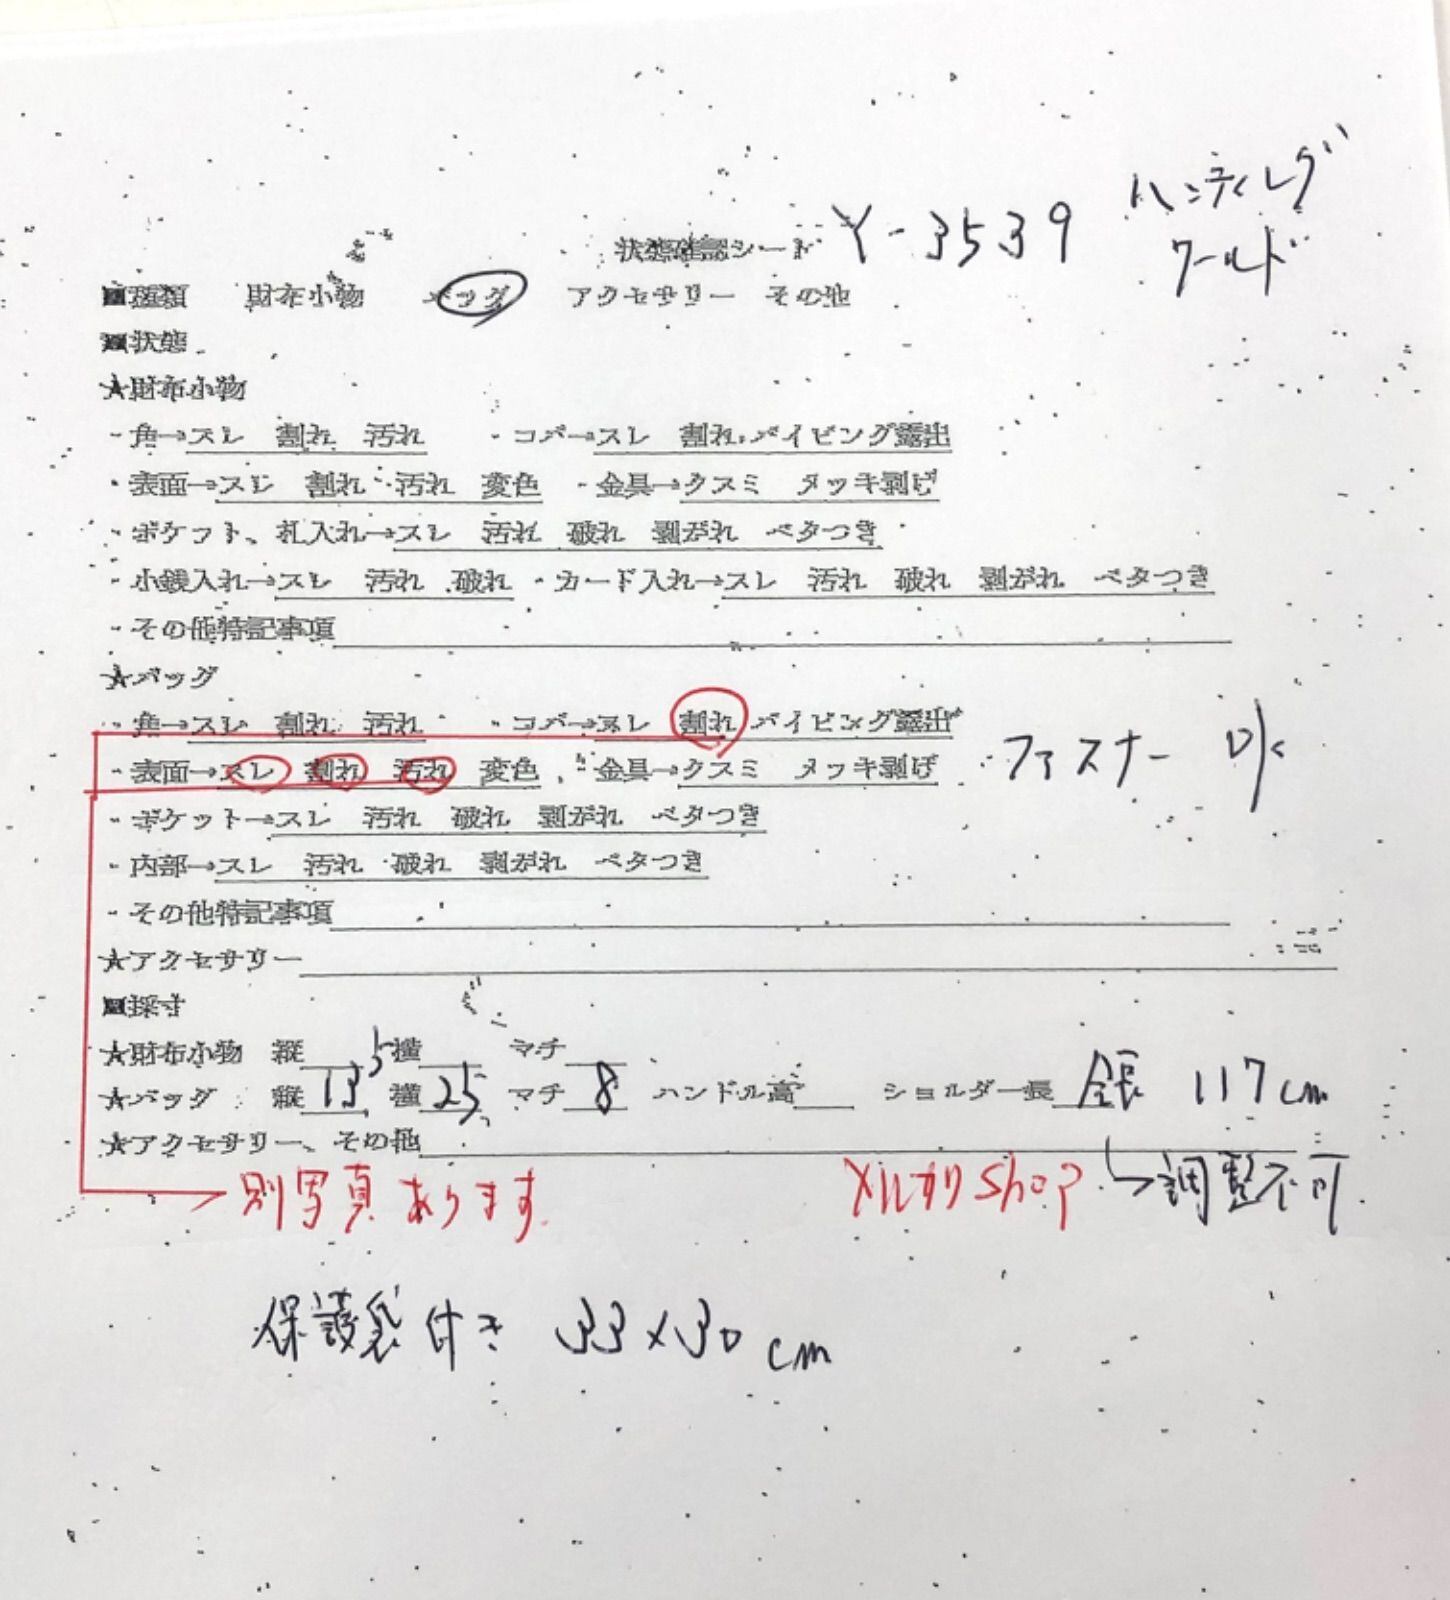 状態確認シート Y-3539 ハンティング
ワールド
■種類 財布小物 バッグ アクセサリー その他
■状態
★財布小物
・角→スレ 割れ 汚れ ・コバ→スレ 割れ パイピング露出
・表面→スレ 割れ 汚れ 変色 ・金具→クスミ メッキ剥げ
・ポケット、札入れ→スレ 汚れ 破れ 剥がれ ベタつき
・小銭入れ→スレ 汚れ 破れ ・カード入れ→スレ 汚れ 破れ 剥がれ ベタつき
・その他特記事項
★バッグ
・角→スレ 割れ 汚れ ・コバ→スレ 割れ パイピング露出
・表面→スレ 割れ 汚れ 変色 ・金具→クスミ メッキ剥げ ファスナー
・ポケット→スレ 汚れ 破れ 剥がれ ベタつき
・内部→スレ 汚れ 破れ 剥がれ ベタつき
・その他特記事項
★アクセサリー
■採寸
★財布小物 縦 横 マチ
★バッグ 縦 13,5 横 25 マチ 8 ハンドル高 ショルダー長 全長 117cm
★アクセサリー、その他
別写真あります メルカリshop →調整不可
保護袋付き 33×30cm